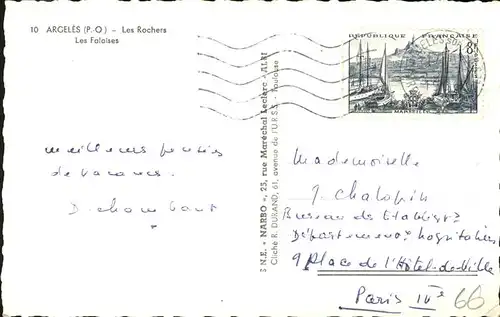 10 ARGELÈS (P.-O.) - Les Rochers
Les Falaises
RÉPUBLIQUE FRANÇAISE
8F
MARSEILLE
S.N.E. « NARBO », 25, rue Maréchal Leclerc - ALBI
Cliché R. DURAND, 61, avenue de l'U.R.S.S. - Toulouse
meilleures pensées
de vacances.
Mademoiselle
J. Chalopin
Bureau des
hospitaliers
9 Place de l'Hôtel-de-Ville
Paris IVe 66